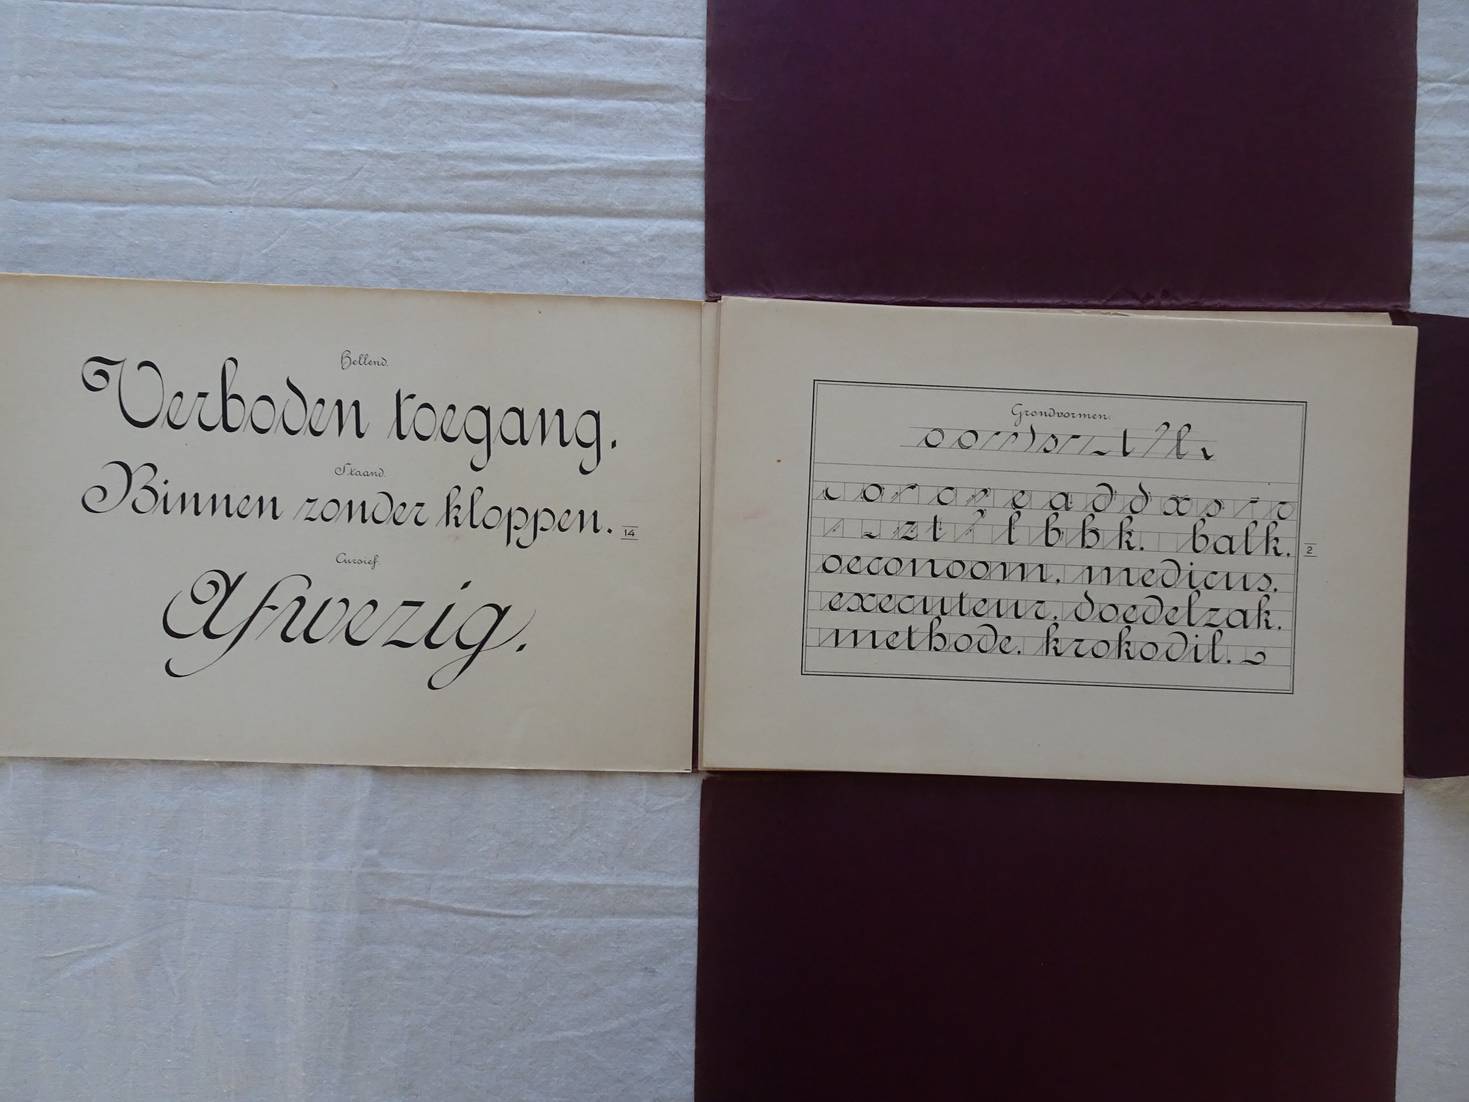 Hellend.
Verboden toegang.
Staand.
Binnen zonder kloppen.
14
Cursief.
Afwezig.
Grondvormen.
balk.
2
oeconoom. medicus.
executeur. doedelzak.
methode. krokodil.